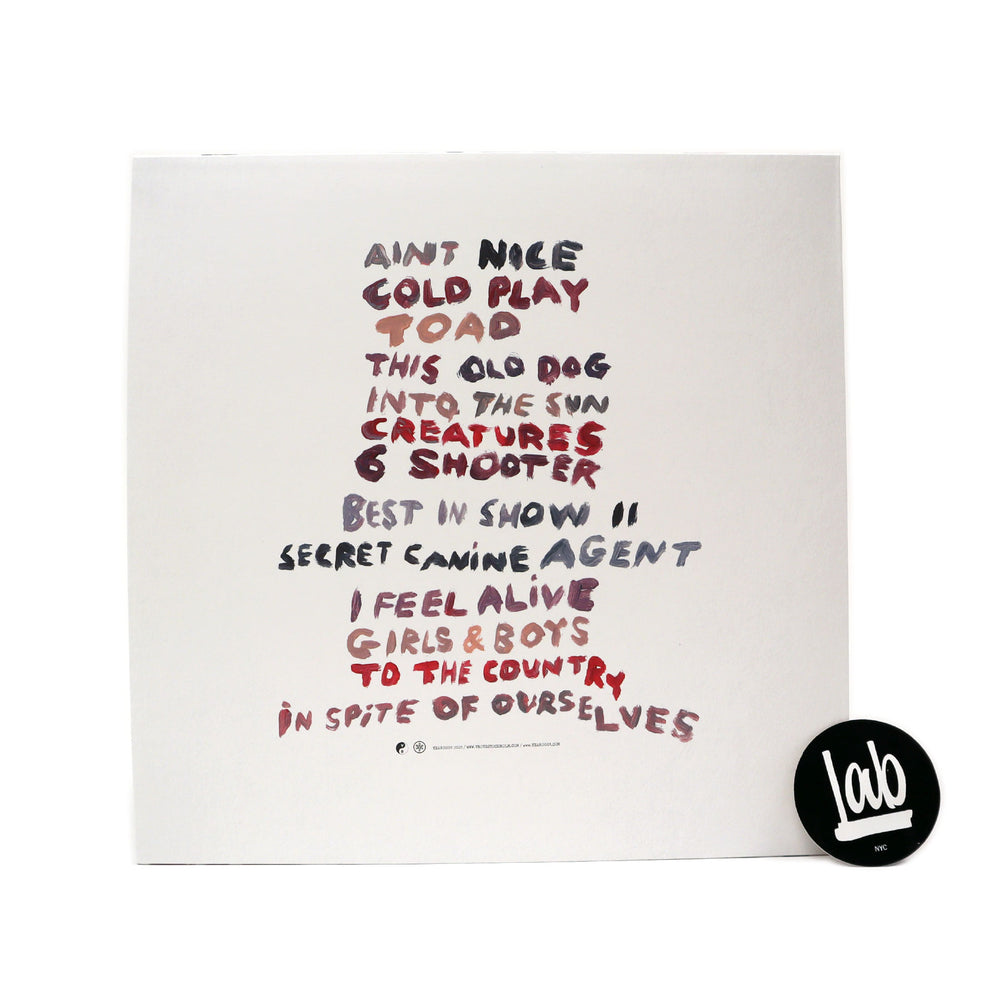 AINT NICE
COLD PLAY
TOAD
THIS OLD DOG
INTO THE SUN
CREATURES
6 SHOOTER
BEST IN SHOW II
SECRET CANiNE AGENT
I FEEL ALiVE
GIRLS & BOYS
TO THE COUNTRY
iN SPiTE OF OURSELVES
Lab
NYC